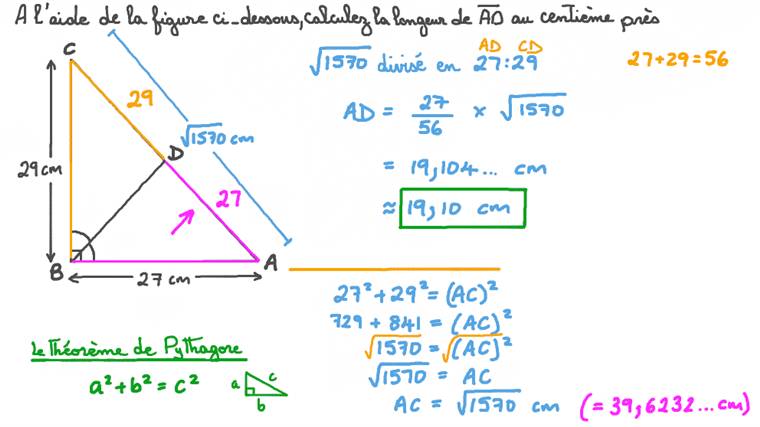 A l'aide de la figure ci-dessous, calculez la longueur de AD au centième près
C
29
√1570 cm
29 cm
D
27
B
A
27 cm
AD CD
√1570 divisé en 27:29
27+29=56
AD = 27/56 × √1570
= 19,104... cm
≈ 19,10 cm
27² + 29² = (AC)²
729 + 841 = (AC)²
√1570 = √(AC)²
√1570 = AC
AC = √1570 cm (= 39,6232... cm)
Le Théorème de Pythagore
a² + b² = c²
a c
b